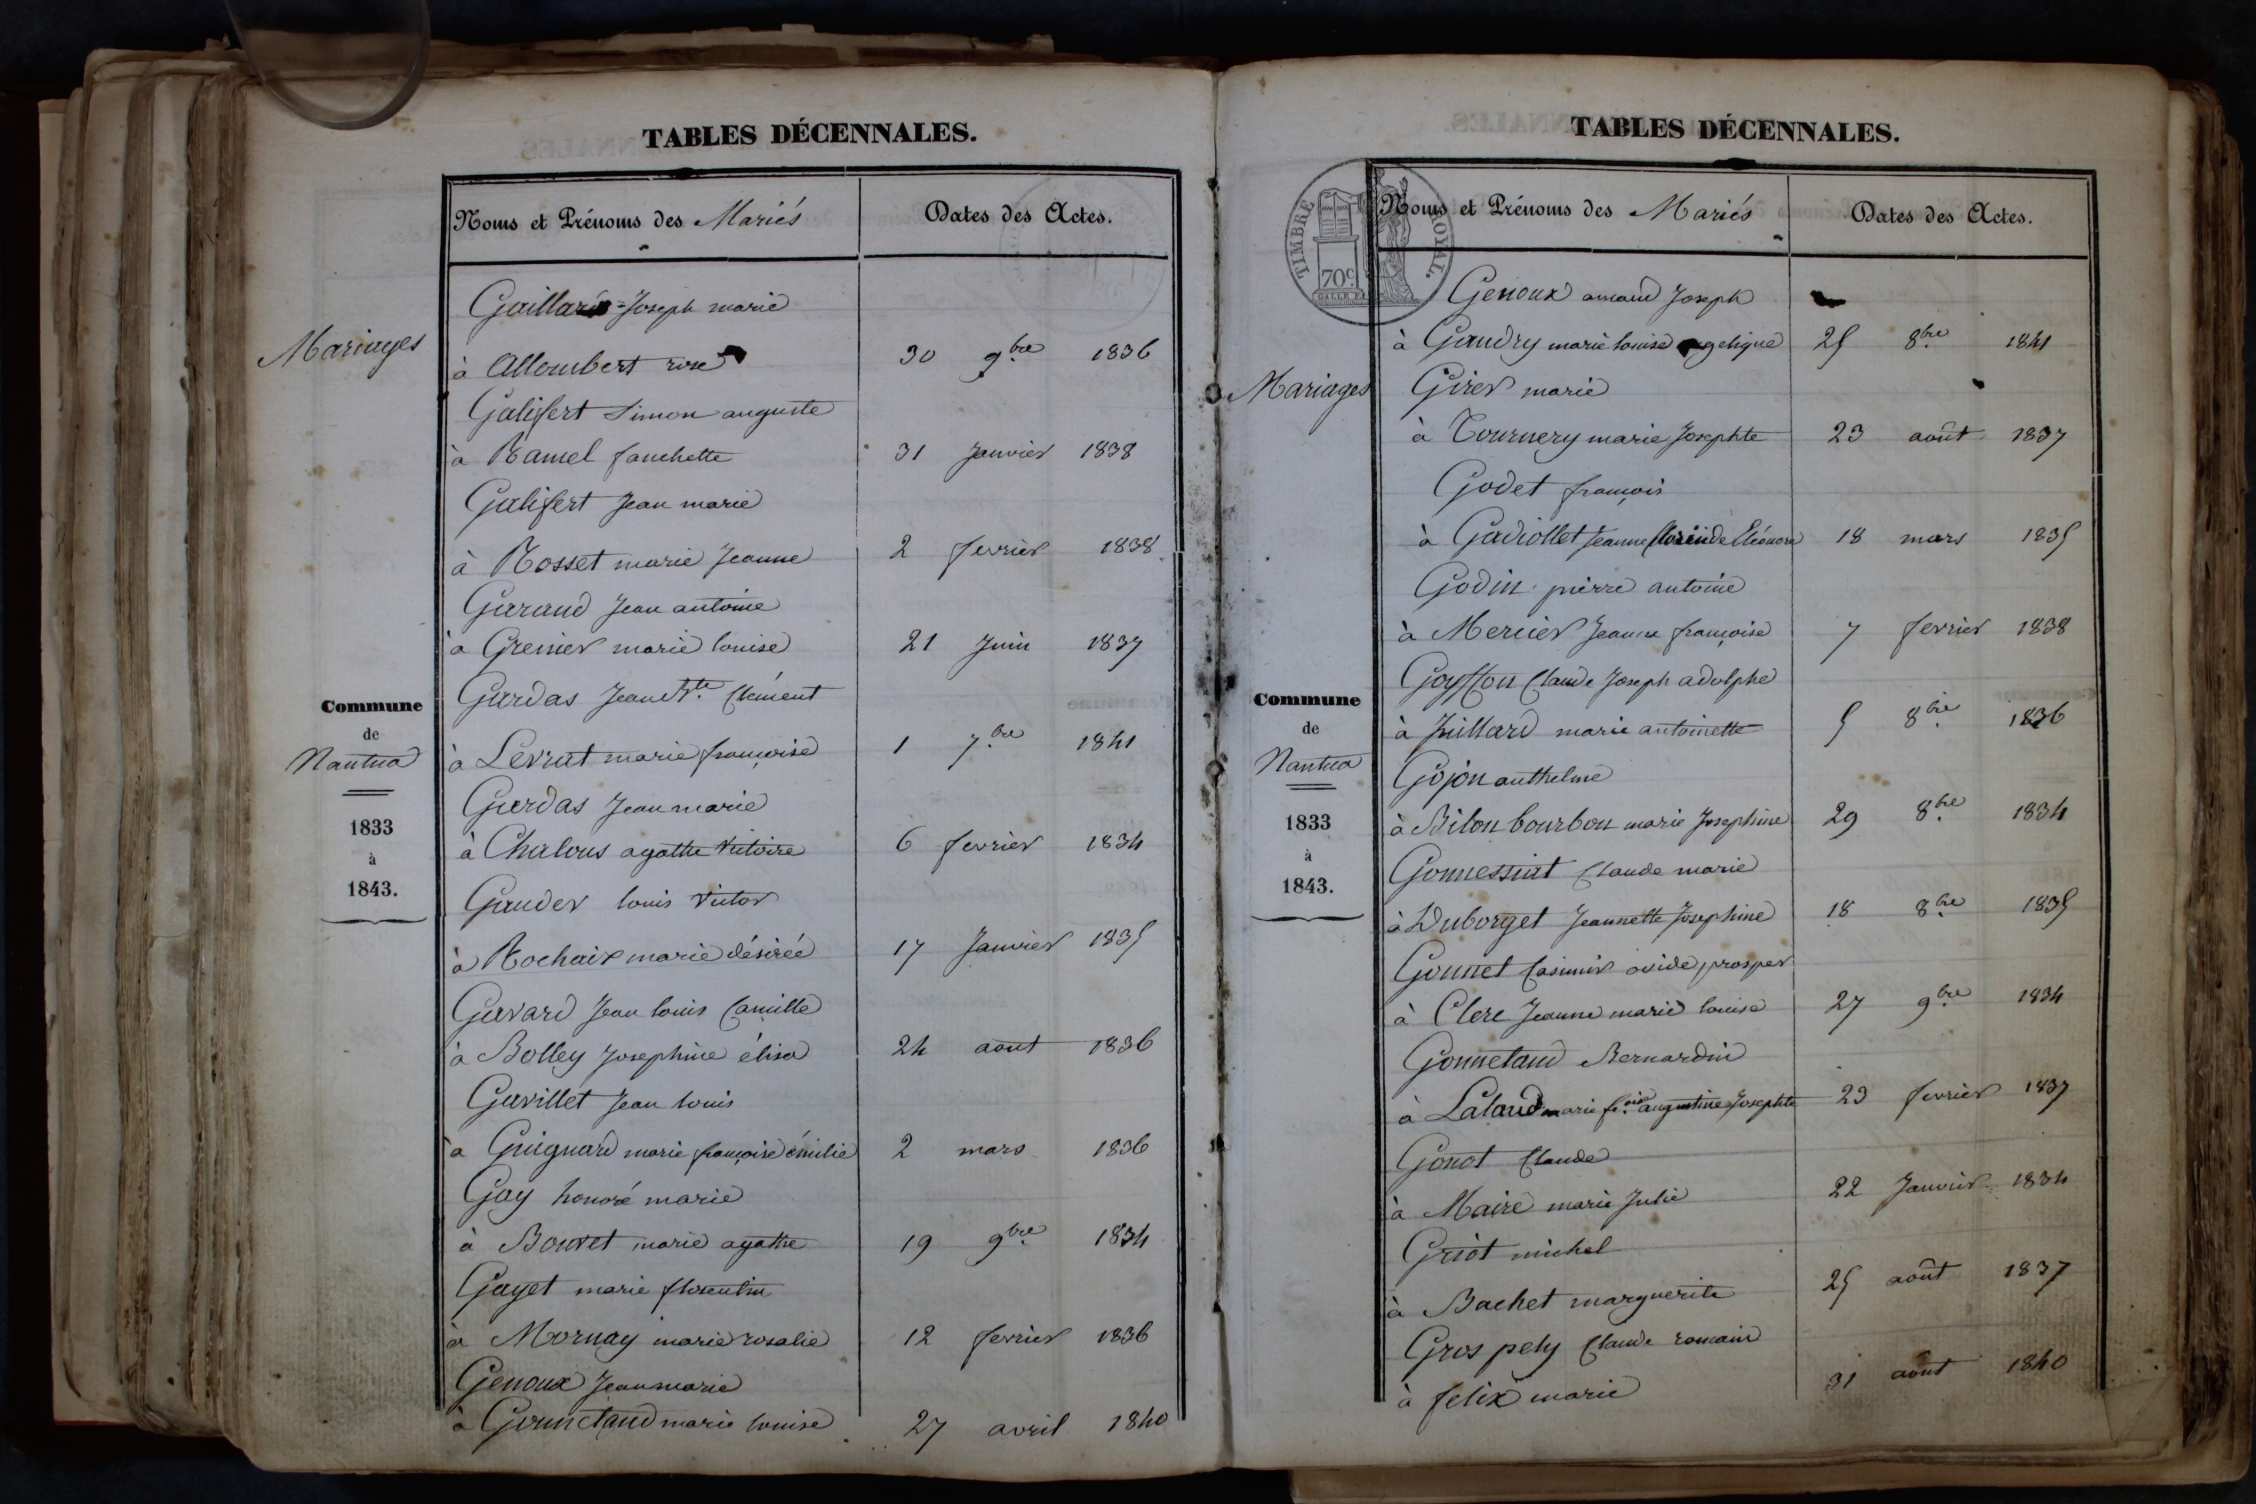 TABLES DÉCENNALES.
Noms et Prénoms des Mariés
Dates des Actes.
Mariages
Gaillard Joseph marie
à Allombert rose 30 9bre 1836
Galifert Simon auguste
à Ramel fanchette 31 Janvier 1838
Galifert Jean marie
à Rosset marie Jeanne 2 fevrier 1838
Garand Jean antoine
à Grenier marie louise 21 Juin 1837
Gardas Jean Bte. Clément
à Levrat marie françoise 1 7bre 1841
Gardas Jean marie
à Chalous agathe Victoire 6 fevrier 1834
Gauder louis Victor
à Rochaix marie désirée 17 Janvier 1835
Gavard Jean louis Camille
à Bolley Josephine élisa 24 aout 1836
Gavillet Jean louis
à Guignard marie françoise émilie 2 mars 1836
Gay honoré marie
à Bouvet marie agathe 19 9bre 1834
Gayet marie florentin
à Mornay marie rosalie 12 fevrier 1836
Genoux Jean marie
à Gonnetand marie louise 27 avril 1840
Commune
de
Nantua
1833
à
1843.
TABLES DÉCENNALES.
TIMBRE ROYAL.
70c.
Noms et Prénoms des Mariés
Dates des Actes.
Mariages
Genoux amand Joseph
à Gaudry marie louise angelique 25 8bre 1841
Girer marie
à Tournery marie Josephte 23 août 1837
Godet françois
à Gadiollet Jeanne Clorinde Eléonore 18 mars 1835
Godin pierre antoine
à Mercier Jeanne françoise 7 fevrier 1838
Goyffon Claude Joseph adolphe
à Juillard marie antoinette 5 8bre 1836
Gojon anthelme
à Bilon bourbon marie Josephine 29 8bre 1834
Gonnessiat Claude marie
à Duborget Jeannette Josephine 18 8bre 1835
Gonnet Casimir ovide prosper
à Clerc Jeanne marie louise 27 9bre 1834
Gonnetand Bernardin
à Laland marie fr.oise augustine Josephte 23 fevrier 1837
Gonot Claude
à Maire marie Julie 22 Janvier 1834
Griot michel
à Bachet marguerite 25 août 1837
Gros pety Claude romain
à felix marie 31 aout 1840
Commune
de
Nantua
1833
à
1843.